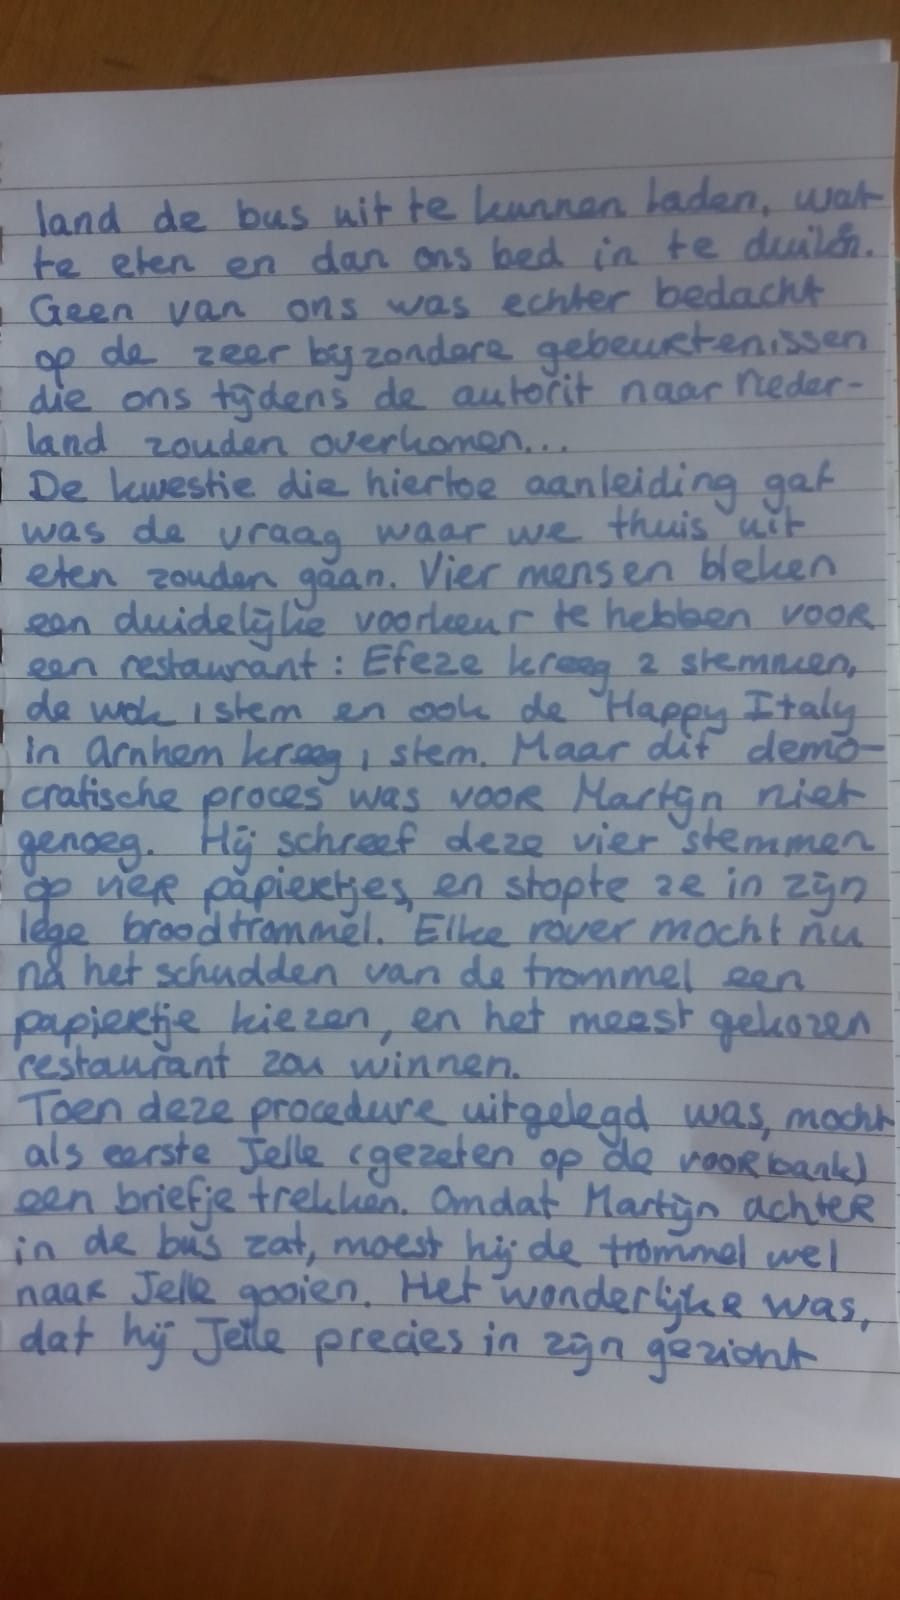 land de bus uit te kunnen laden, wat
te eten en dan ons bed in te duiken.
Geen van ons was echter bedacht
op de zeer bijzondere gebeurtenissen
die ons tijdens de autorit naar Neder-
land zouden overkomen...
De kwestie die hiertoe aanleiding gaf
was de vraag waar we thuis uit
eten zouden gaan. Vier mensen bleken
een duidelijke voorkeur te hebben voor
een restaurant: Efeze kreeg 2 stemmen,
de wok 1 stem en ook de Happy Italy
in Arnhem kreeg 1 stem. Maar dit demo-
cratische proces was voor Martijn niet
genoeg. Hij schreef deze vier stemmen
op vier papiertjes, en stopte ze in zijn
lege broodtrommel. Elke rover mocht nu
na het schudden van de trommel een
papiertje kiezen, en het meest gekozen
restaurant zou winnen.
Toen deze procedure uitgelegd was, mocht
als eerste Jelle (gezeten op de voorbank)
een briefje trekken. Omdat Martijn achter
in de bus zat, moest hij de trommel wel
naar Jelle gooien. Het wonderlijke was,
dat hij Jelle precies in zijn gezicht